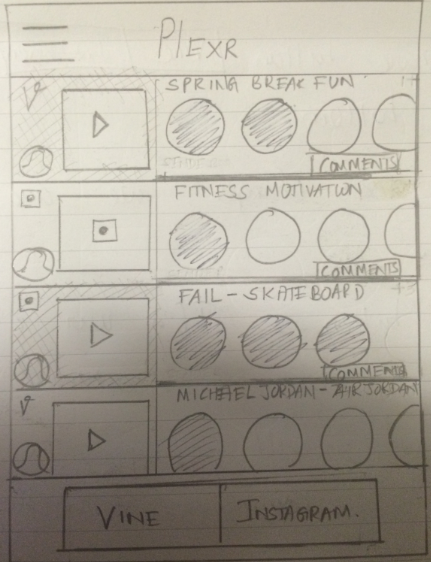 PlEXR
SPRING BREAK FUN
COMMENTS
FITNESS MOTIVATION
COMMENTS
FAIL - SKATEBOARD
COMMENTS
JORDAN
VINE
INSTAGRAM.